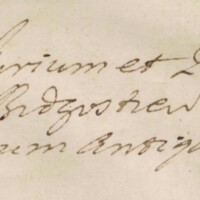 urium et
Bidgostien
um Antiq